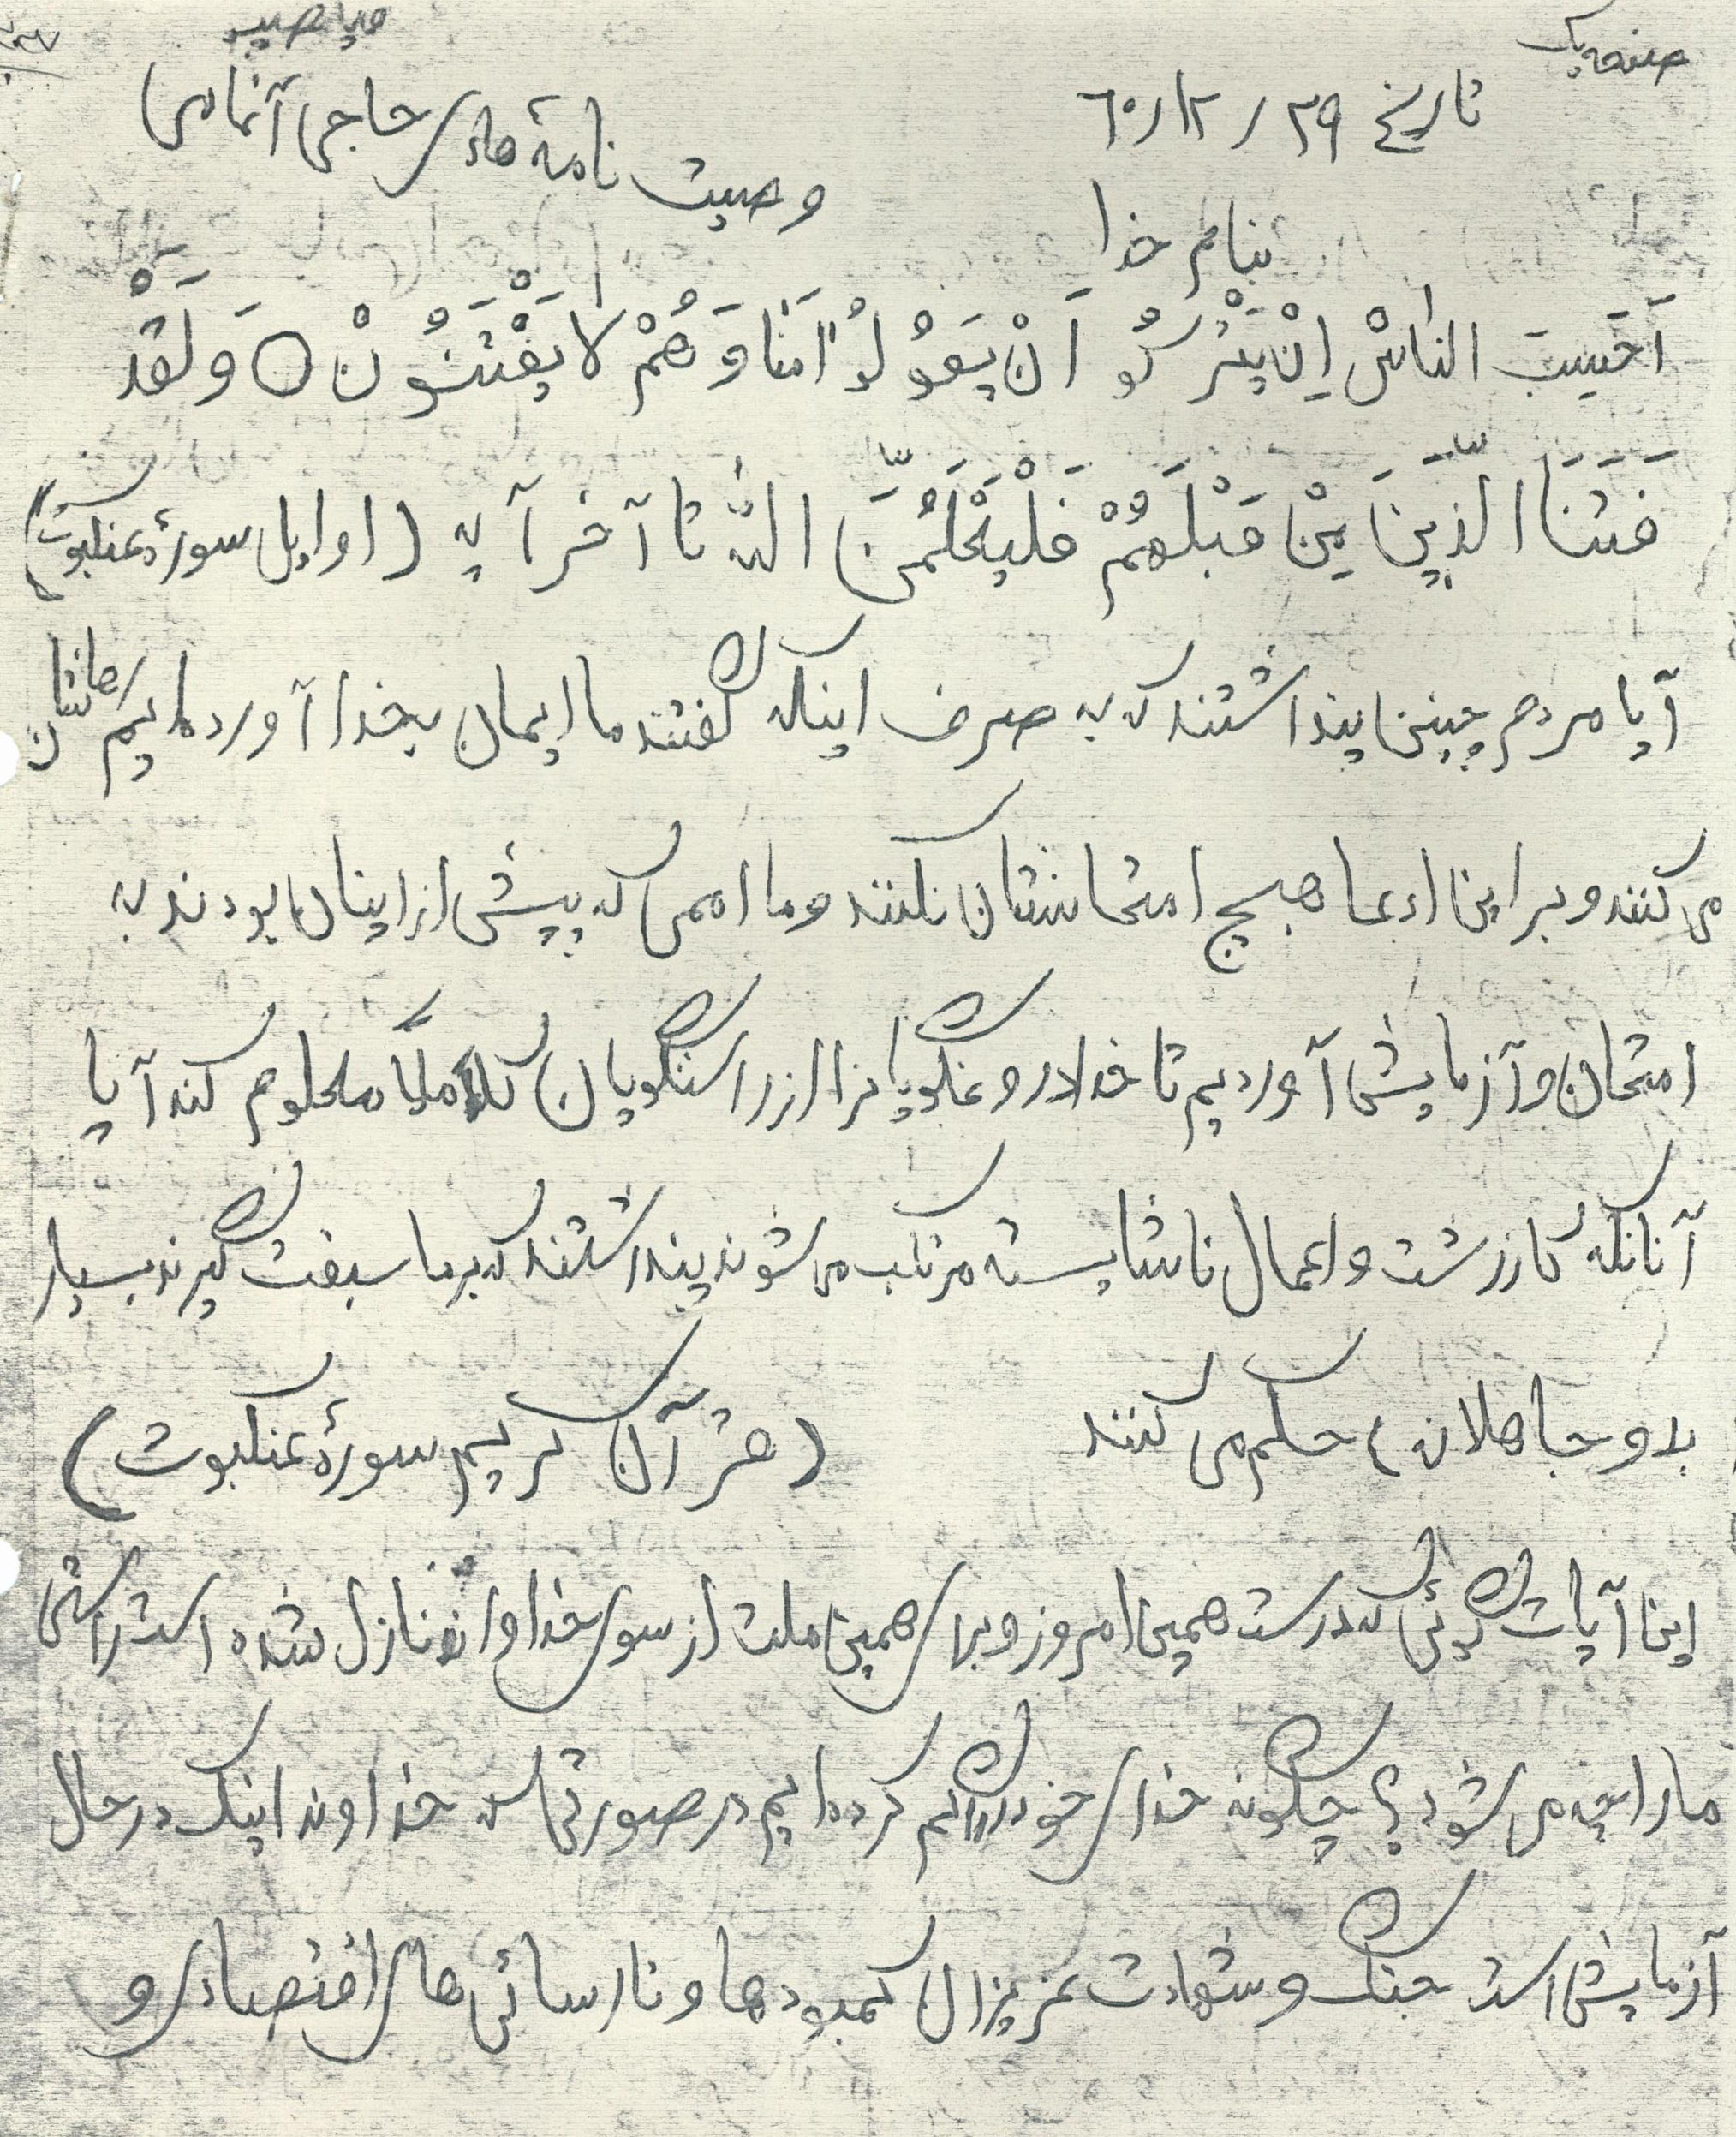 صفحه یک
تاریخ ۲۹ / ۱۲ / ۶۰
وصیت نامهٔ حاجی آقا
بنام خدا
اَحَسِبَ النّاسْ اِنْ یَتْرَکُو اَنْ یَقوُلوُ امَنّا وَ هُمْ لا یَفْتَنُونْ ○ وَ لَقَدْ
فَتَنَا الَّذینَ مِنْ قَبْلَهُمْ فَلْیَعْلَمَُنَّ اللّه تا آخر آیه (اوایل سورهٔ عنکبوت)
آیا مردم چنین پنداشتند که به صرف اینکه گفتند ما ایمان بخدا آورده‌ایم رهاشان
می کنند و بر این ادعا هیچ امتحانشان نکنند و ما اممی که پیش از اینان بودند به
امتحان و آزمایش آوردیم تا خدا دروغگویانرا از راستگویان کاملاً معلوم کند آیا
آنانکه کار زشت و اعمال ناشایسته مرتکب می شوند پنداشتند که بر ما سبقت گیرند بسیار
بد و جاهلانه) حکم می کنند (قرآن کریم سورهٔ عنکبوت)
این آیات گوئی که درست همین امروز و برای همین ملت از سوی خداوند نازل شده است راستی
ما را چه می شود؟ چگونه خدای خود را گم کرده‌ایم در صورتی که خداوند اینک در حال
آزمایش است جنگ و شهادت عزیزان کمبودها و نارسائی های اقتصادی و